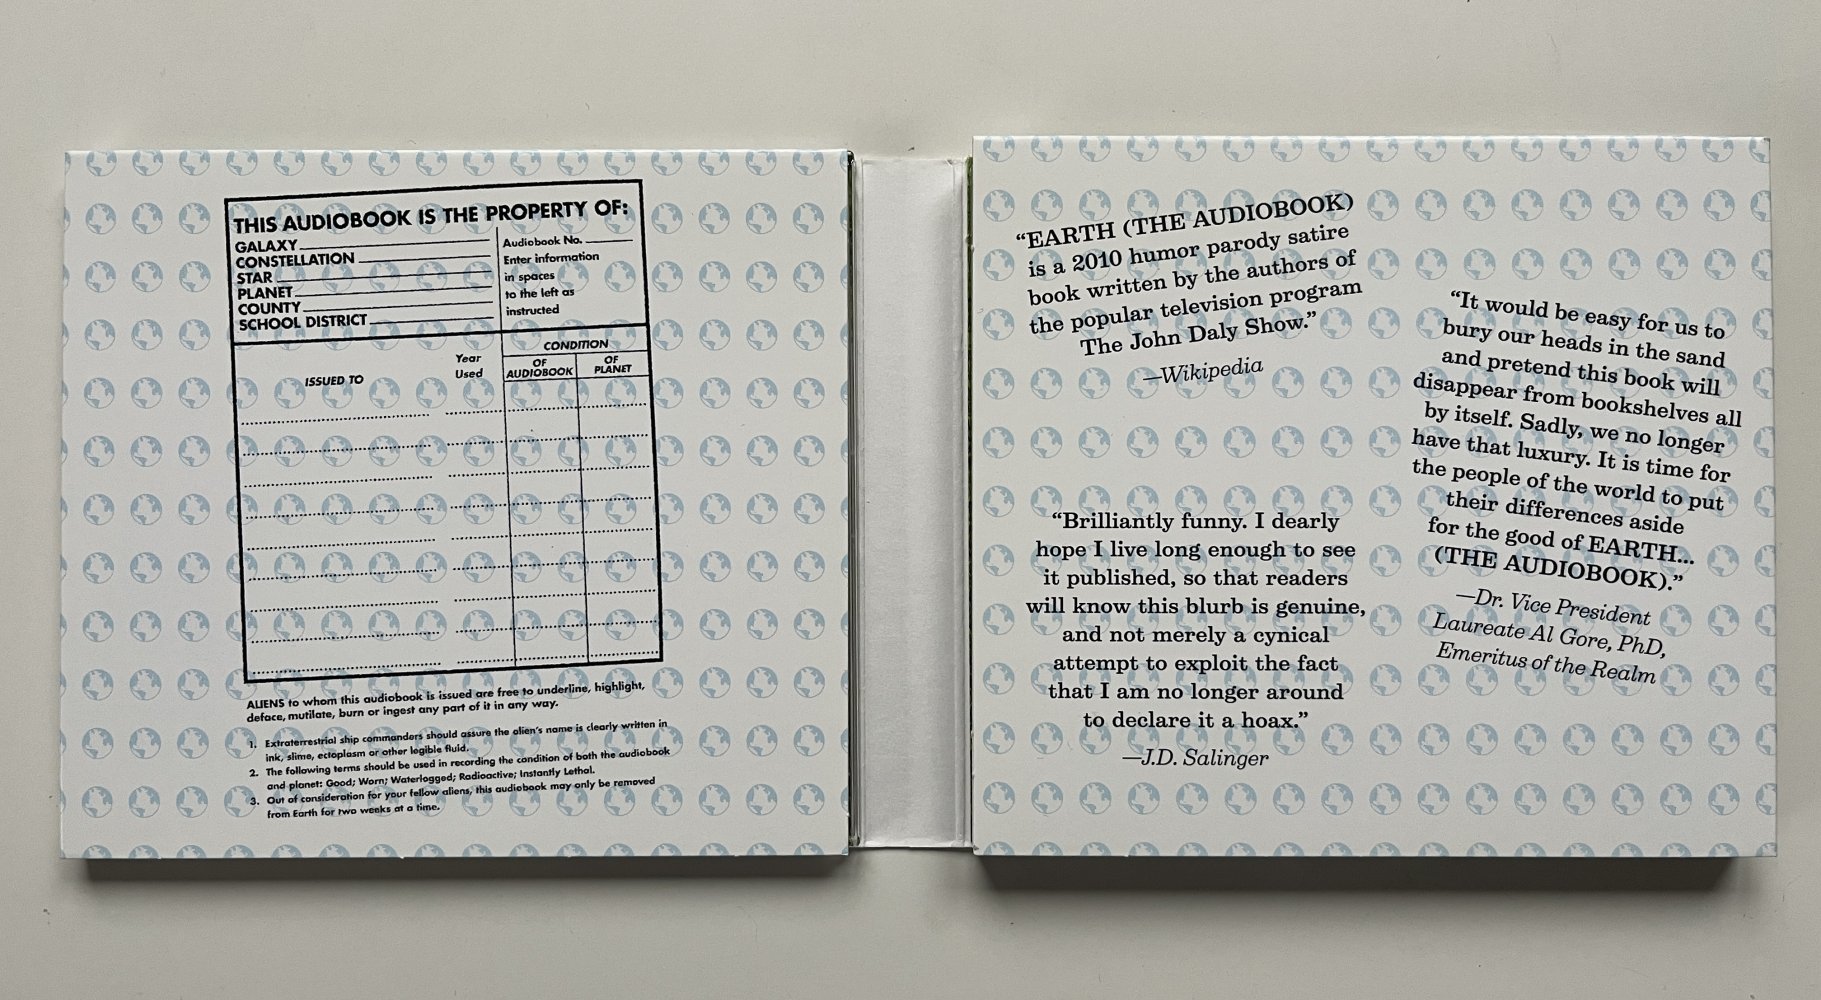 THIS AUDIOBOOK IS THE PROPERTY OF:
GALAXY
CONSTELLATION
STAR
PLANET
COUNTY
SCHOOL DISTRICT
Audiobook No.
Enter information
in spaces
to the left as
instructed
ISSUED TO
Year
Used
CONDITION
OF
AUDIOBOOK
OF
PLANET
ALIENS to whom this audiobook is issued are free to underline, highlight,
deface, mutilate, burn or ingest any part of it in any way.
1. Extraterrestrial ship commanders should assure the alien's name is clearly written in
ink, slime, ectoplasm or other legible fluid.
2. The following terms should be used in recording the condition of both the audiobook
and planet: Good; Worn; Waterlogged; Radioactive; Instantly Lethal.
3. Out of consideration for your fellow aliens, this audiobook may only be removed
from Earth for two weeks at a time.
“EARTH (THE AUDIOBOOK)
is a 2010 humor parody satire
book written by the authors of
the popular television program
The John Daly Show.”
—Wikipedia
“Brilliantly funny. I dearly
hope I live long enough to see
it published, so that readers
will know this blurb is genuine,
and not merely a cynical
attempt to exploit the fact
that I am no longer around
to declare it a hoax.”
—J.D. Salinger
“It would be easy for us to
bury our heads in the sand
and pretend this book will
disappear from bookshelves all
by itself. Sadly, we no longer
have that luxury. It is time for
the people of the world to put
their differences aside
for the good of EARTH...
(THE AUDIOBOOK).”
—Dr. Vice President
Laureate Al Gore, PhD,
Emeritus of the Realm